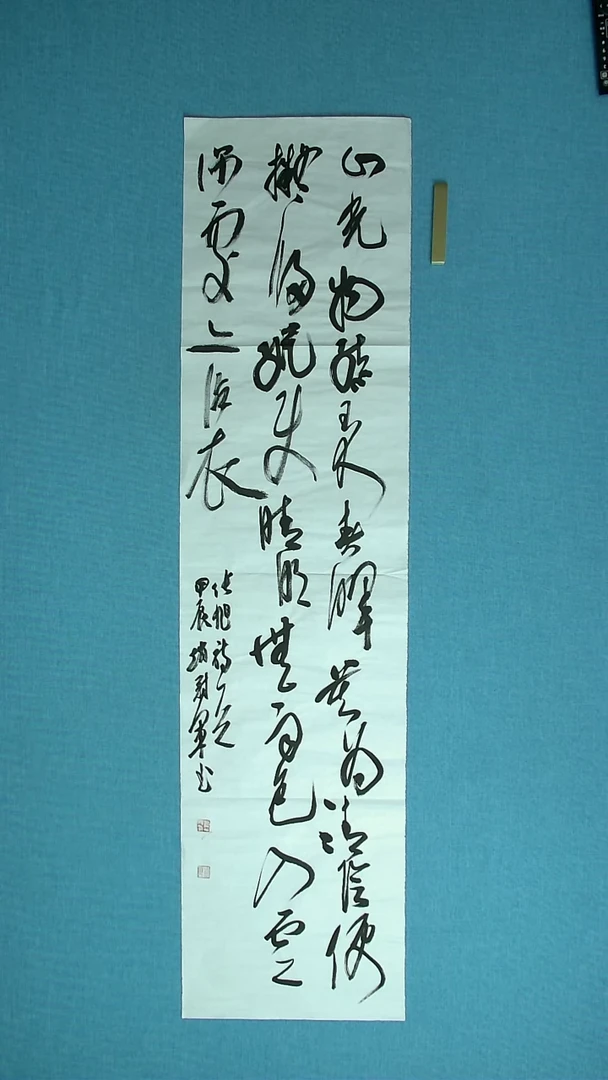 山光物態弄春暉莫為輕陰便
擬歸縱使晴明無雨色入雲
深處亦沾衣
張旭詩一首
甲辰 軍书